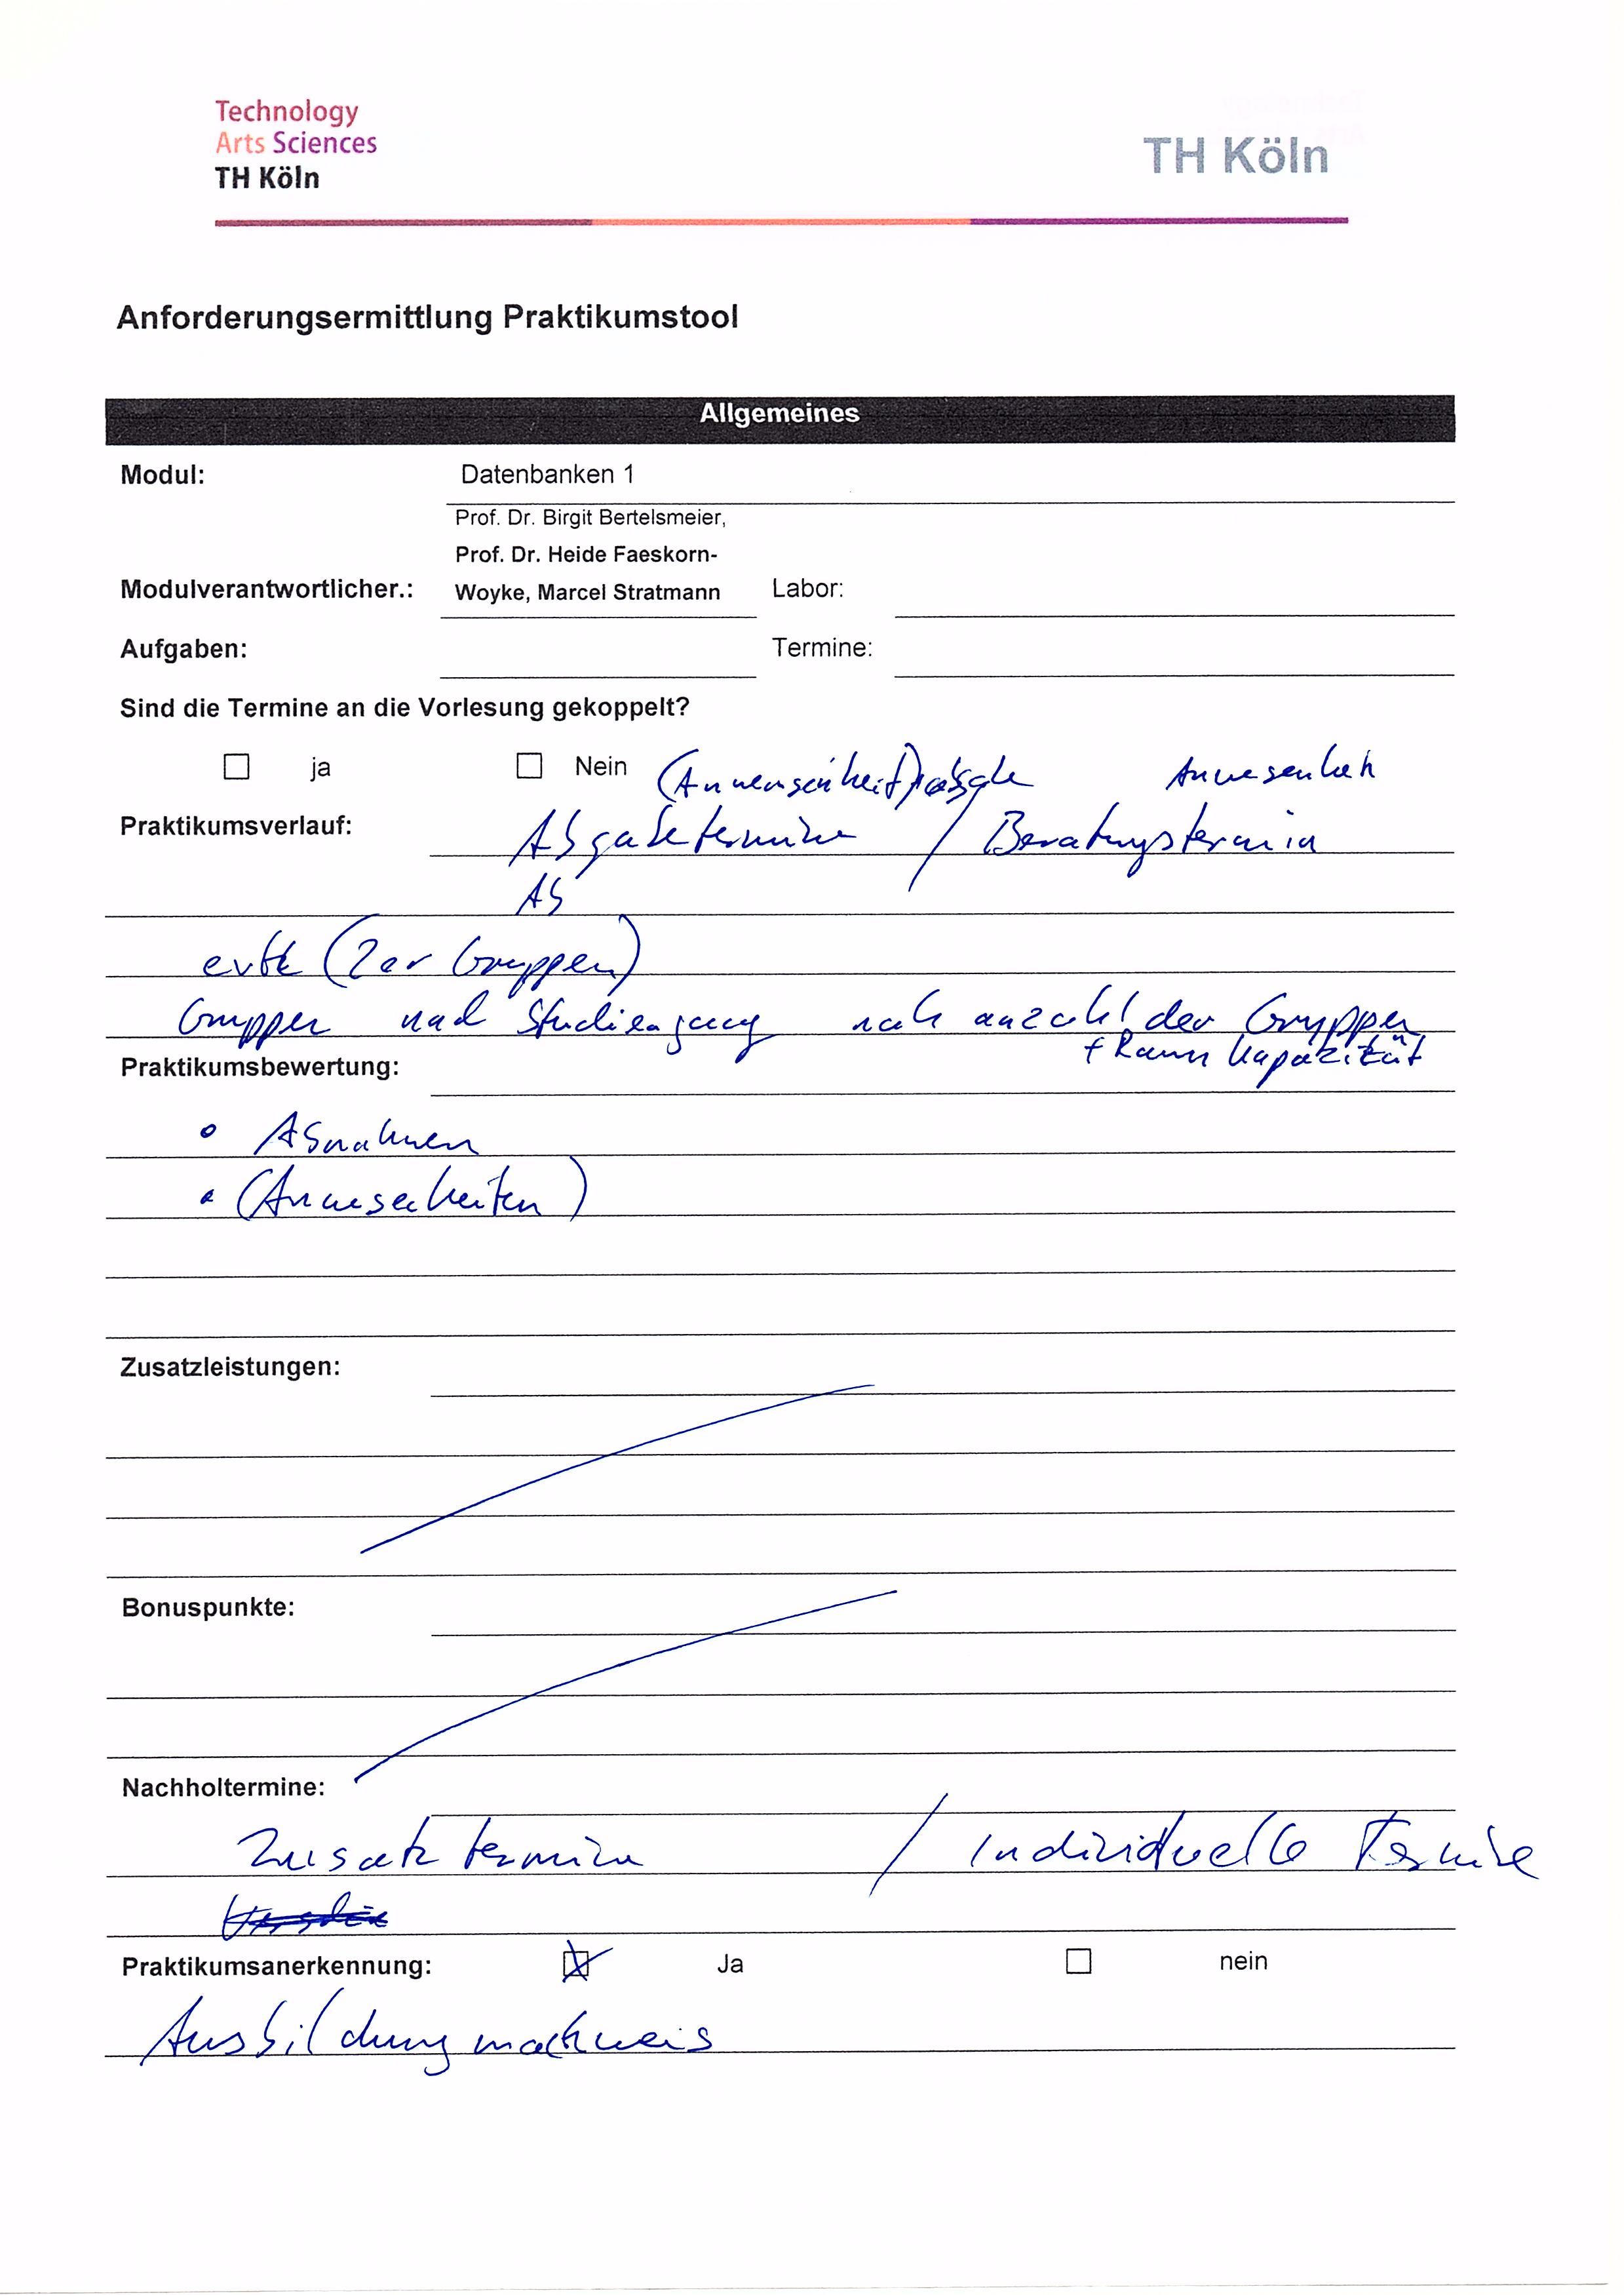 Technology
Arts Sciences
TH Köln
TH Köln
Anforderungsermittlung Praktikumstool
Allgemeines
Modul: Datenbanken 1
Prof. Dr. Birgit Bertelsmeier,
Prof. Dr. Heide Faeskorn-
Modulverantwortlicher.: Woyke, Marcel Stratmann Labor:
Aufgaben: Termine:
Sind die Termine an die Vorlesung gekoppelt?
ja Nein (Anwesenheit)
Praktikumsverlauf: Abgabetermine / Beratungstermin
Ab
(2er Gruppen)
Gruppen nach Studiengang nach anzahl der Gruppen
+ Raum Kapazität
Praktikumsbewertung:
Abnahmen
(Anwesenheiten)
Zusatzleistungen:
Bonuspunkte:
Nachholtermine:
Zusatz termine / Individuelle Termine
Praktikumsanerkennung: Ja nein
Ausbildungsnachweis